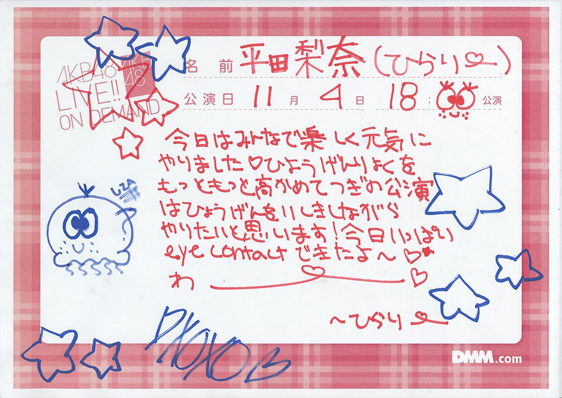 AKB48
LIVE!!
ON DEMAND
AKB48
名 前 平田梨奈(ひらり)
公演日 11 月 4 日 18 : 公演
今日はみんなで楽しく元気に
やりました♡ひょうげんりょくを
もっともっと高かめてつぎの公演
はひょうげんをいしきしながら
やりたいと思います!今日いっぱい
eye contactできたよ〜♡
わ ♡ ♡
〜ひらり
DMM.com